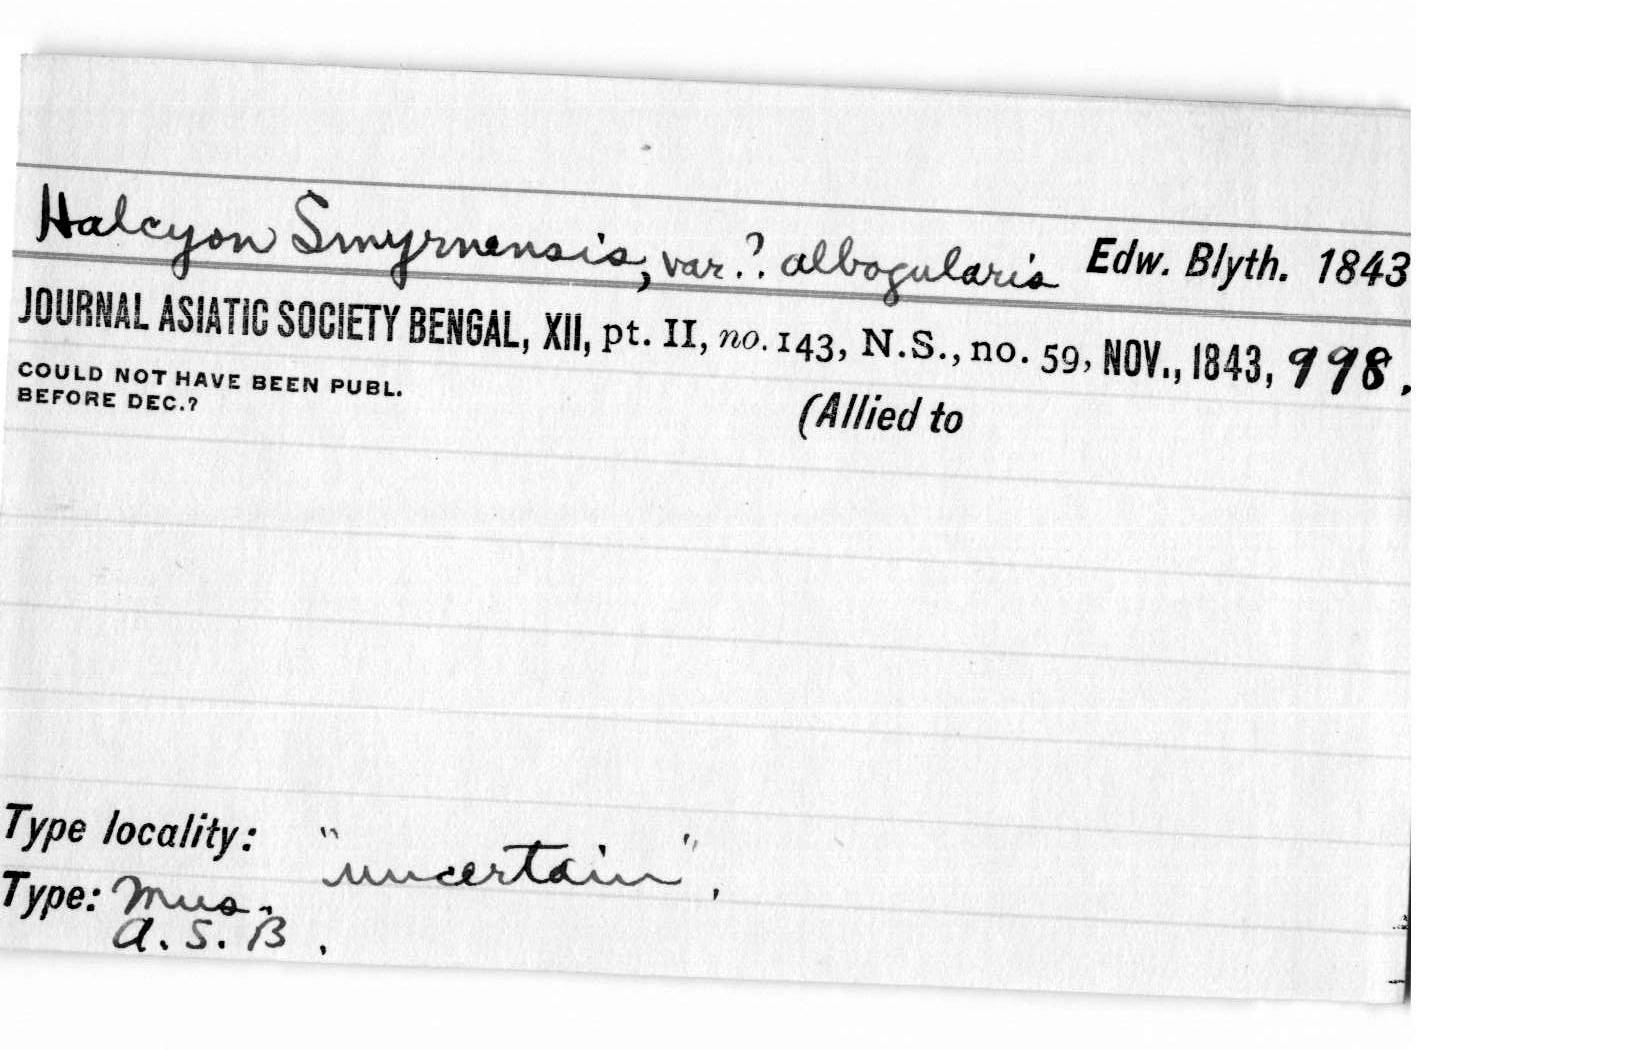 Halcyon Smyrnensis, var.? albogularis Edw. Blyth. 1843
JOURNAL ASIATIC SOCIETY BENGAL, XII, pt. II, no. 143, N.S., no. 59, NOV., 1843, 998.
COULD NOT HAVE BEEN PUBL.
BEFORE DEC.?
(Allied to
Type locality: "uncertain".
Type: Mus.
A.S.B.